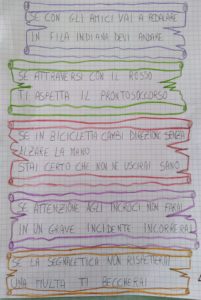 SE CON GLI AMICI VAI A PEDALARE
IN FILA INDIANA DEVI ANDARE
SE ATTRAVERSI CON IL ROSSO
TI ASPETTA IL PRONTOSOCCORSO
SE IN BICICLETTA CAMBI DIREZIONE SENZA
ALZARE LA MANO
STAI CERTO CHE NON NE USCIRAI SANO
SE ATTENZIONE AGLI INCROCI NON FARAI
IN UN GRAVE INCIDENTE INCORRERAI
SE LA SEGNALETICA NON RISPETTERAI
UNA MULTA TI BECCHERAI